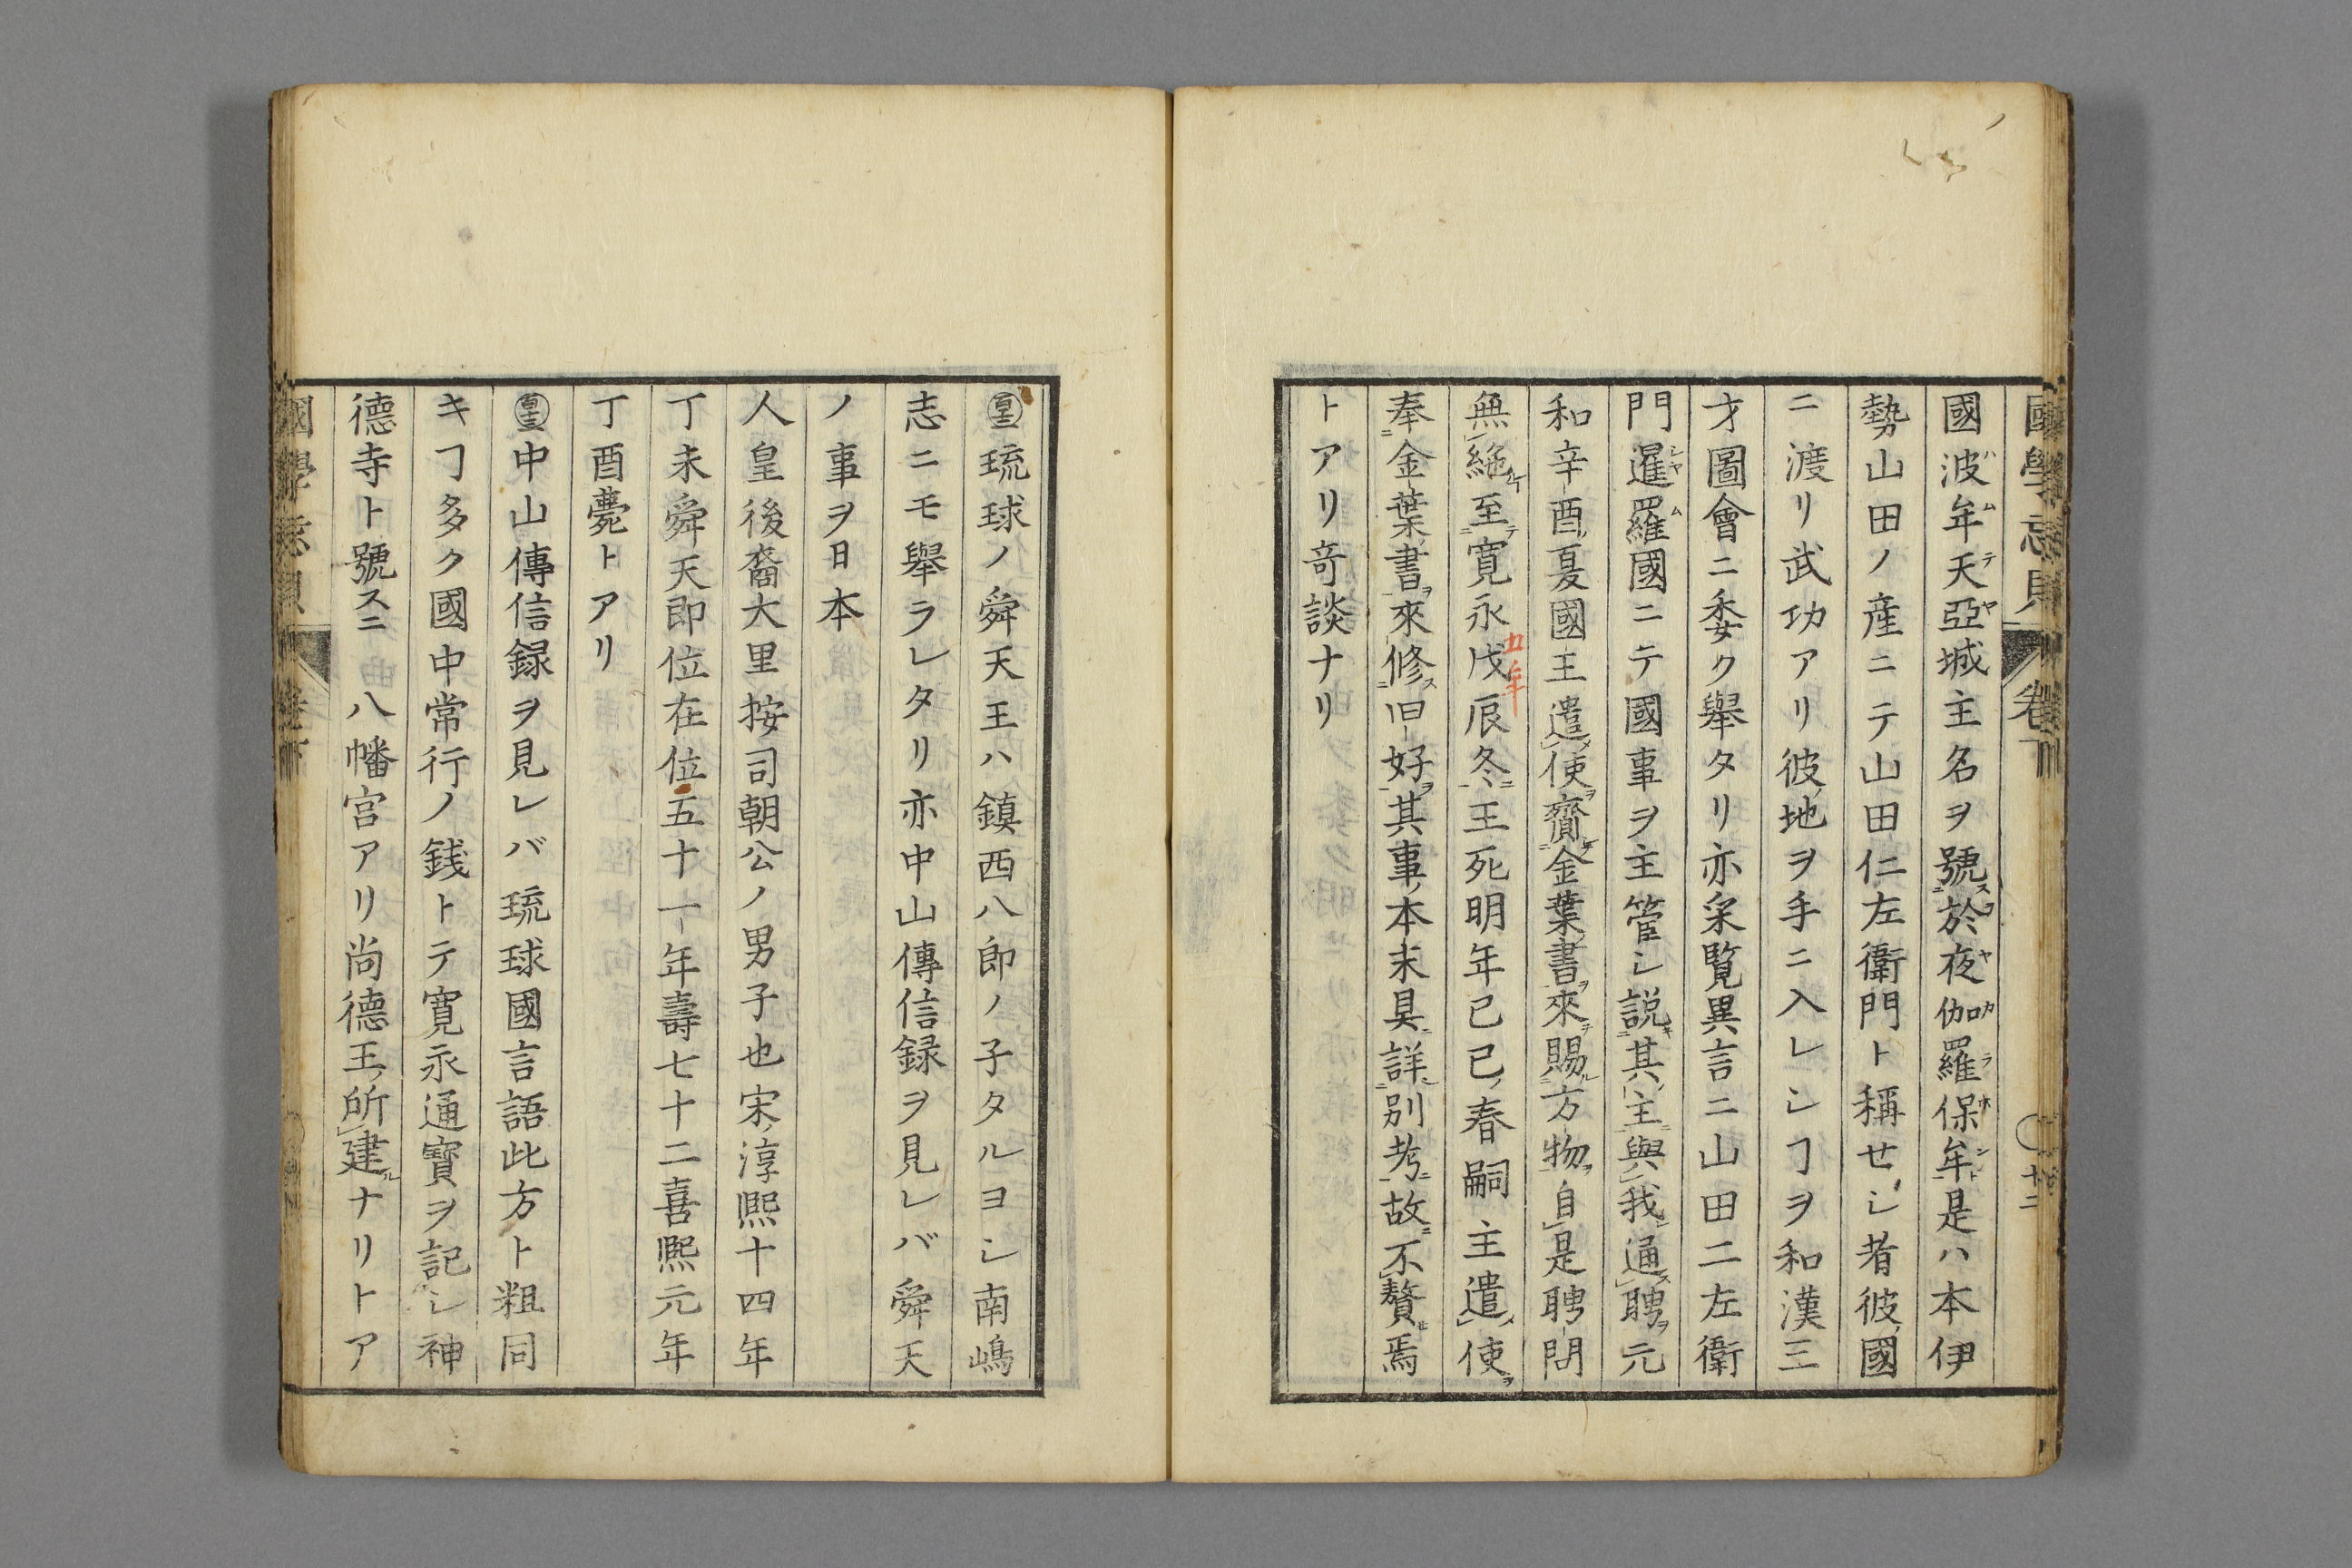 國波牟天亞城主名ヲ號於夜伽羅保牟是ハ本伊
勢山田ノ産ニテ山田仁左衛門ト稱せシ者彼國
ニ渡リ武功アリ彼地ヲ手ニ入レシヿヲ和漢三
才圖會ニ委ク舉タリ亦采覽異言ニ山田二左衛
門暹羅國ニテ國事ヲ主管シ説其主與我通聘元
和辛酉夏國王遣使齎金葉書來賜方物自是聘問
無絶至寛永戊辰冬王死明年己巳春嗣主遣使
五年
奉金葉書來修旧好其事本末具詳別考故不贅焉
トアリ竒談ナリ
琉球ノ舜天王ハ鎮西八郎ノ子タルヨシ南嶋
志ニモ舉ラレタリ亦中山傳信録ヲ見レバ舜天
ノ事ヲ日本
人皇後裔大里按司朝公ノ男子也宋淳熙十四年
丁未舜天即位在位五十一年壽七十二喜熙元年
丁酉薨トアリ
中山傳信録ヲ見レバ琉球國言語此方ト粗同
キヿ多ク國中常行ノ銭トテ寛永通寳ヲ記シ神
德寺ト號スニ八幡宮アリ尚德王所建ナリトア